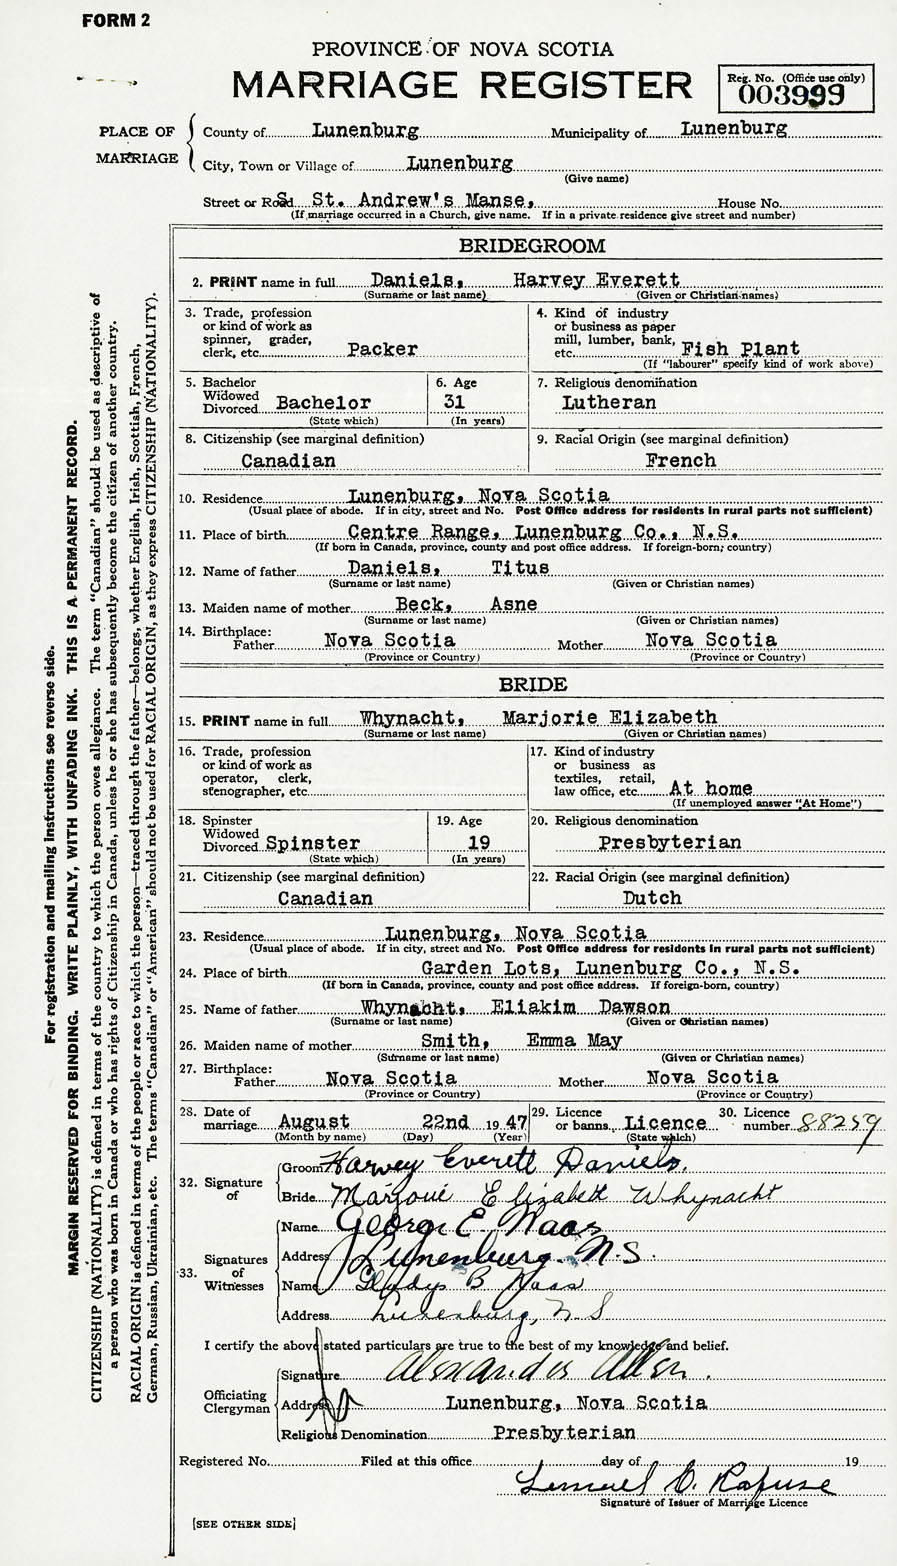 FORM 2
PROVINCE OF NOVA SCOTIA
MARRIAGE REGISTER
Reg. No. (Office use only)
003999
PLACE OF MARRIAGE
County of Lunenburg Municipality of Lunenburg
City, Town or Village of Lunenburg
(Give name)
Street or Road St. Andrew's Manse, House No.
(If marriage occurred in a Church, give name. If in a private residence give street and number)
BRIDEGROOM
2. PRINT name in full Daniels, Harvey Everett
(Surname or last name) (Given or Christian names)
3. Trade, profession
or kind of work as
spinner, grader,
clerk, etc. Packer
4. Kind of industry
or business as paper
mill, lumber, bank,
etc. Fish Plant
(If "labourer" specify kind of work above)
5. Bachelor
Widowed
Divorced Bachelor
(State which)
6. Age
31
(In years)
7. Religious denomination
Lutheran
8. Citizenship (see marginal definition)
Canadian
9. Racial Origin (see marginal definition)
French
10. Residence Lunenburg, Nova Scotia
(Usual place of abode. If in city, street and No. Post Office address for residents in rural parts not sufficient)
11. Place of birth Centre Range, Lunenburg Co., N.S.
(If born in Canada, province, county and post office address. If foreign-born; country)
12. Name of father Daniels, Titus
(Surname or last name) (Given or Christian names)
13. Maiden name of mother Beck, Asne
(Surname or last name) (Given or Christian names)
14. Birthplace:
Father Nova Scotia Mother Nova Scotia
(Province or Country) (Province or Country)
BRIDE
15. PRINT name in full Whynacht, Marjorie Elizabeth
(Surname or last name) (Given or Christian names)
16. Trade, profession
or kind of work as
operator, clerk,
stenographer, etc.
17. Kind of industry
or business as
textiles, retail,
law office, etc. At home
(If unemployed answer "At Home")
18. Spinster
Widowed
Divorced Spinster
(State which)
19. Age
19
(In years)
20. Religious denomination
Presbyterian
21. Citizenship (see marginal definition)
Canadian
22. Racial Origin (see marginal definition)
Dutch
23. Residence Lunenburg, Nova Scotia
(Usual place of abode. If in city, street and No. Post Office address for residents in rural parts not sufficient)
24. Place of birth Garden Lots, Lunenburg Co., N.S.
(If born in Canada, province, county and post office address. If foreign-born, country)
25. Name of father Whynacht, Eliakim Dawson
(Surname or last name) (Given or Christian names)
26. Maiden name of mother Smith, Emma May
(Surname or last name) (Given or Christian names)
27. Birthplace:
Father Nova Scotia Mother Nova Scotia
(Province or Country) (Province or Country)
28. Date of
marriage August 22nd 1947
(Month by name) (Day) (Year)
29. Licence
or banns Licence
(State which)
30. Licence
number 88259
32. Signature of
Groom Harvey Everett Daniels.
Bride Marjorie Elizabeth Whynacht
33. Signatures of Witnesses
Name George E. Naas
Address Lunenburg. N.S.
Name Gladys B Naas
Address Lunenburg, N.S
I certify the above stated particulars are true to the best of my knowledge and belief.
Officiating Clergyman
Signature Alexander Allen.
Address Lunenburg, Nova Scotia
Religious Denomination Presbyterian
Registered No. Filed at this office day of 19
Lemuel O. Rafuse
Signature of Issuer of Marriage Licence
[SEE OTHER SIDE]
For registration and mailing instructions see reverse side.
MARGIN RESERVED FOR BINDING. WRITE PLAINLY, WITH UNFADING INK. THIS IS A PERMANENT RECORD.
CITIZENSHIP (NATIONALITY) is defined in terms of the country to which the person owes allegiance. The term "Canadian" should be used as descriptive of
a person who was born in Canada or who has rights of Citizenship in Canada, unless he or she has subsequently become the citizen of another country.
RACIAL ORIGIN is defined in terms of the people or race to which the person—traced through the father—belongs, whether English, Irish, Scottish, French,
German, Russian, Ukrainian, etc. The terms "Canadian" or "American" should not be used for RACIAL ORIGIN, as they express CITIZENSHIP (NATIONALITY).